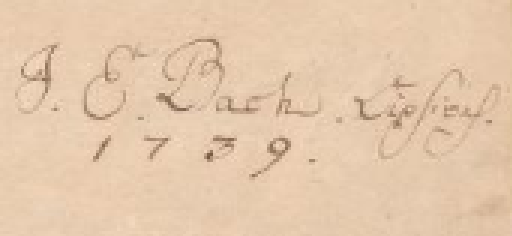 J. E. Bach. Lipsiens.
1739.